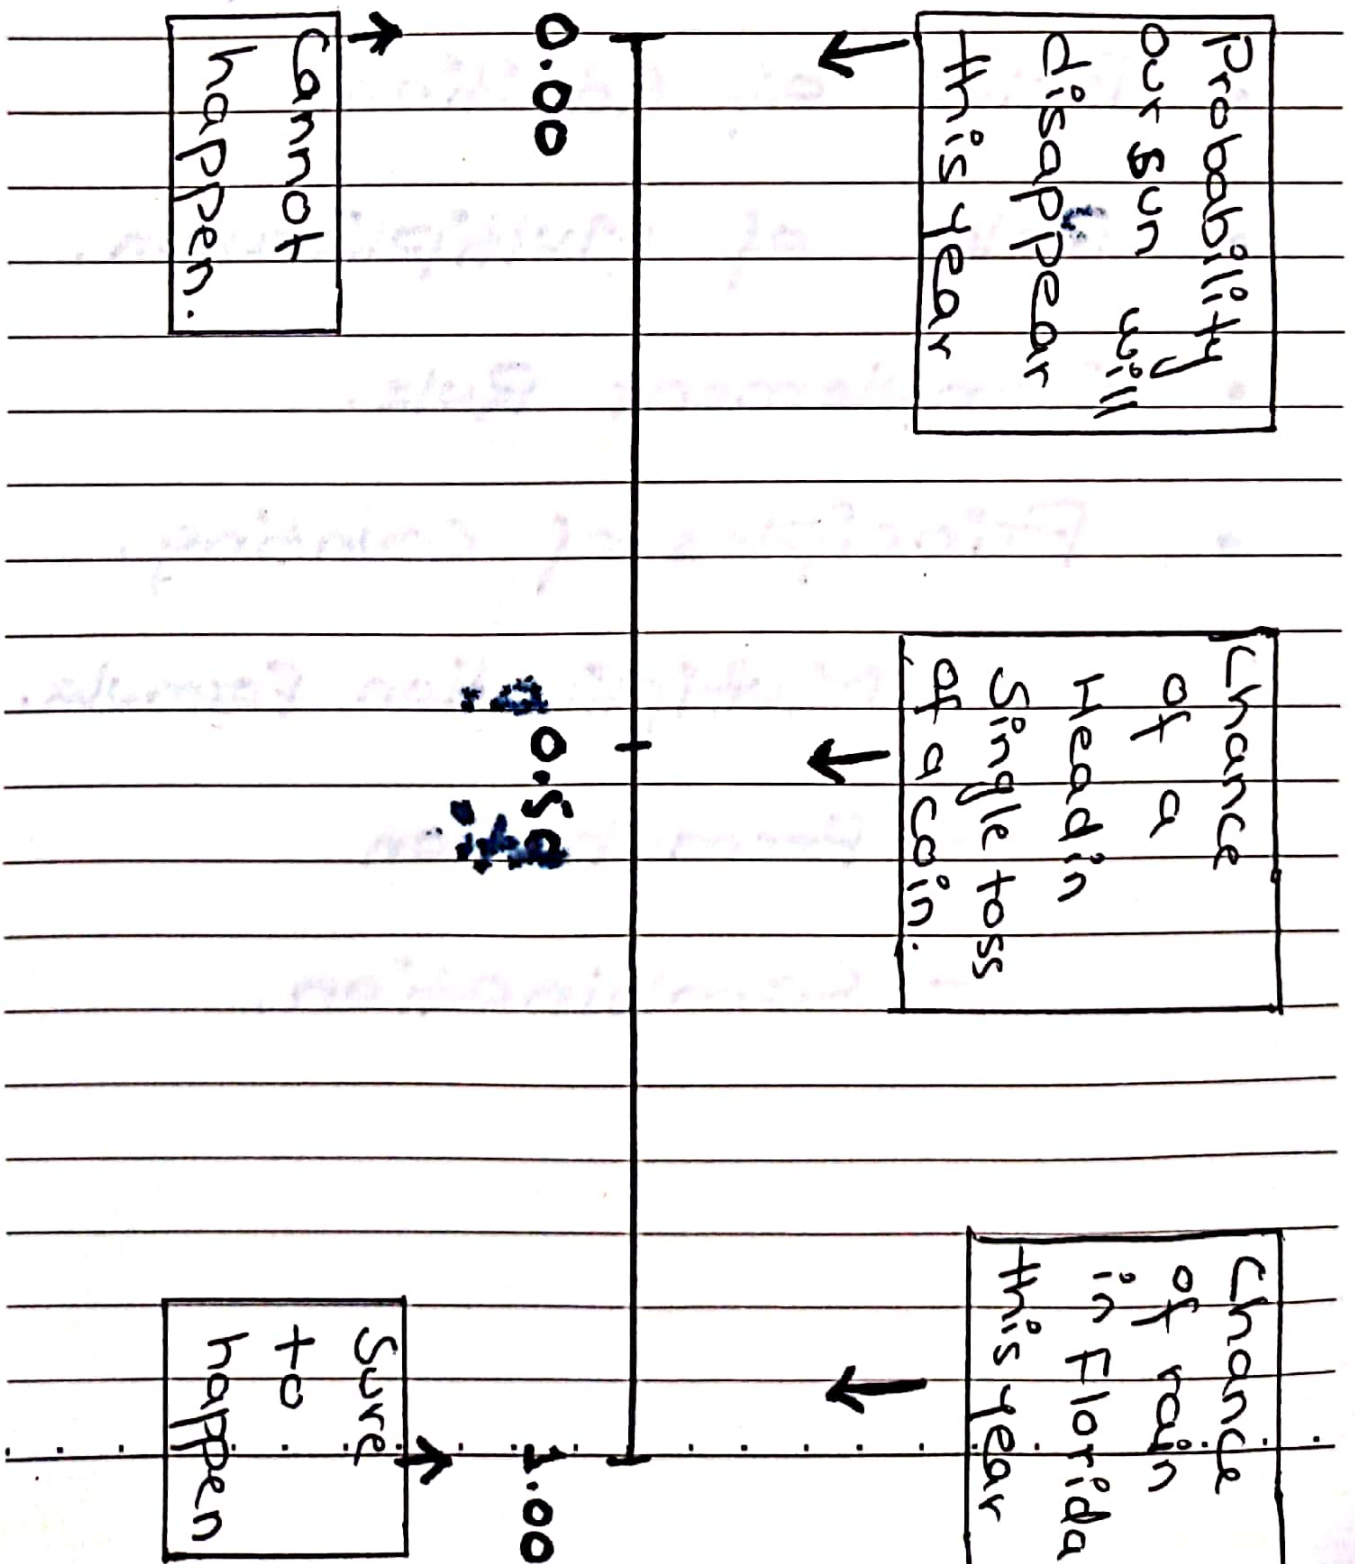 Probability
our sun will
disappear
this year
Chance
of a
Head in
Single toss
of a Coin.
Chance
of rain
in Florida
this year
0.00
0.50
1.00
Cannot
happen.
Sure
to
happen